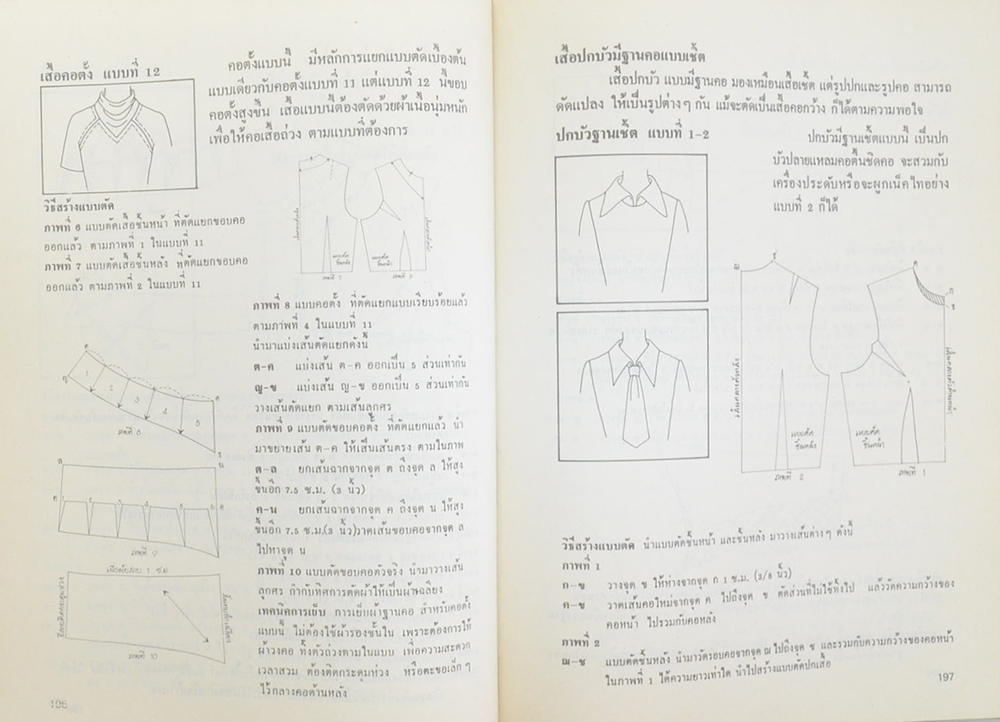 เสื้อคอตั้ง แบบที่ 12
คอตั้งแบบนี้ มีหลักการแยกแบบตัดเบื้องต้น
แบบเดียวกับคอตั้งแบบที่ 11 แต่แบบที่ 12 นี้ขอบ
คอตั้งสูงขึ้น เสื้อแบบนี้ต้องตัดด้วยผ้าเนื้อนุ่มหนัก
เพื่อให้คอเสื้อถ่วง ตามแบบที่ต้องการ
วิธีสร้างแบบตัด
ภาพที่ 6 แบบตัดเสื้อชิ้นหน้า ที่ตัดแยกขอบคอ
ออกแล้ว ตามภาพที่ 1 ในแบบที่ 11
ภาพที่ 7 แบบตัดเสื้อชิ้นหลัง ที่ตัดแยกขอบคอ
ออกแล้ว ตามภาพที่ 2 ในแบบที่ 11
แบบตัด
ชิ้นหลัง
แบบตัด
ชิ้นหน้า
ภาพที่ 7
ภาพที่ 6
ภาพที่ 8 แบบคอตั้ง ที่ตัดแยกแบบเรียบร้อยแล้ว
ตามภาพที่ 4 ในแบบที่ 11
นำมาแบ่งเส้นตัดแยกดังนี้
ต-ค แบ่งเส้น ต-ค ออกเป็น 5 ส่วนเท่ากัน
ญ-ข แบ่งเส้น ญ-ข ออกเป็น 5 ส่วนเท่ากัน
วางเส้นตัดแยก ตามเส้นลูกศร
ภาพที่ 9 แบบตัดขอบคอตั้ง ที่ตัดแยกแล้ว นำ
มาขยายเส้น ต-ค ให้เป็นเส้นตรง ตามในภาพ
ต-ล ยกเส้นฉากจากจุด ต ถึงจุด ล ให้สูง
ขึ้นอีก 7.5 ซ.ม. (3 นิ้ว)
ค-น ยกเส้นฉากจากจุด ค ถึงจุด น ให้สูง
ขึ้นอีก 7.5 ซ.ม.(3 นิ้ว)วาดเส้นขอบคอจากจุด ล
ไปหาจุด น
ภาพที่ 10 แบบตัดขอบคอตัวจริง นำมาวางเส้น
ลูกศร กำกับทิศการตัดผ้าให้เป็นผ้าเฉลียง
เทคนิคการเย็บ การเย็บผ้าฐานคอ สำหรับคอตั้ง
แบบนี้ ไม่ต้องใช้ผ้ารองชั้นใน เพราะต้องการให้
ผ้าวงคอ ทิ้งตัวถ่วงตามในแบบ เพื่อความสะดวก
เวลาสวม ต้องติดกระดุมห่วง หรือตะขอเล็กๆ
ไว้กลางคอด้านหลัง
1
2
3
4
5
ภาพที่ 8
ภาพที่ 9
ภาพที่ 10
196
เสื้อปกบัวมีฐานคอแบบเชิ้ต
เสื้อปกบัว แบบมีฐานคอ มองเหมือนเสื้อเชิ้ต แต่รูปปกและรูปคอ สามารถ
ดัดแปลง ให้เป็นรูปต่างๆ กัน แม้จะตัดเป็นเสื้อคอกว้าง ก็ได้ตามความพอใจ
ปกบัวฐานเชิ้ต แบบที่ 1-2
ปกบัวมีฐานเชิ้ตแบบนี้ เป็นปก
บัวปลายแหลมคอตื้นชิดคอ จะสวมกับ
เครื่องประดับหรือจะผูกเน็คไทอย่าง
แบบที่ 2 ก็ได้
เส้นกลางตัวหลัง
แบบตัด
ชิ้นหลัง
แบบตัด
ชิ้นหน้า
เส้นกลางตัวด้านหน้า
ภาพที่ 2
ภาพที่ 1
วิธีสร้างแบบตัด นำแบบตัดชิ้นหน้า และชิ้นหลัง มาวางเส้นต่างๆ ดังนี้
ภาพที่ 1
ก-ช วางจุด ช ให้ห่างจากจุด ก 1 ซ.ม. (3/8 นิ้ว)
ค-ช วาดเส้นคอใหม่จากจุด ค ไปถึงจุด ช ตัดส่วนที่ไม่ใช้ทิ้งไป แล้ววัดความกว้างของ
คอหน้า ไปรวมกับคอหลัง
ภาพที่ 2
ฌ-ช แบบตัดชิ้นหลัง นำมาวัดรอบคอจากจุด ฌ ไปถึงจุด ช และรวมกับความกว้างของคอหน้า
ในภาพที่ 1 ได้ความยาวเท่าใด นำไปสร้างแบบตัดปกเสื้อ
197